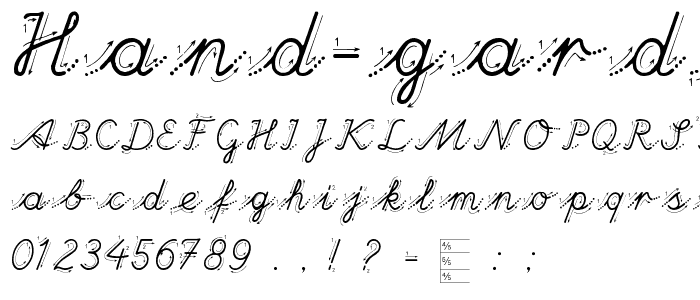 Hand-gard
ABCDEFGHIJKLMNOPQRS
abcdefghijklmnopqrs
0123456789 . , ! ? - 4/5 5/5 4/5 : ;